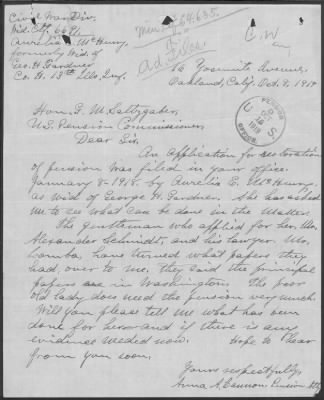 Civil War Div.
Wid. Ctf. 6691
Aurelia McHenry
formerly Wid of
Geo. H. Gardner
Co. H. 13th Ills. Inf.
C.W.
16 Yosemite Avenue,
Oakland, Calif. Oct. 9, 1918
U.S. PENSION OFFICE
Hon. G. M. Saltzgaber,
U.S. Pension Commissioner,
Dear Sir.
An application for restoration
of pension was filed in your office
January 8-1918. by Aurelia E. McHenry
as wid of George H. Gardner. She has asked
me to see what can be done in the matter.
The gentleman who applied for her, Mr.
Alexander Schmidt, and his lawyer Mr.
have turned what papers they
had, over to me. They said the principal
papers are in Washington. The poor
old lady does need the pension very much.
Will you please tell me what has been
done for her and if there is any
evidence needed now. Hope to hear
from you soon.
Yours respectfully,
Anna A. Cannon. Pension Atty